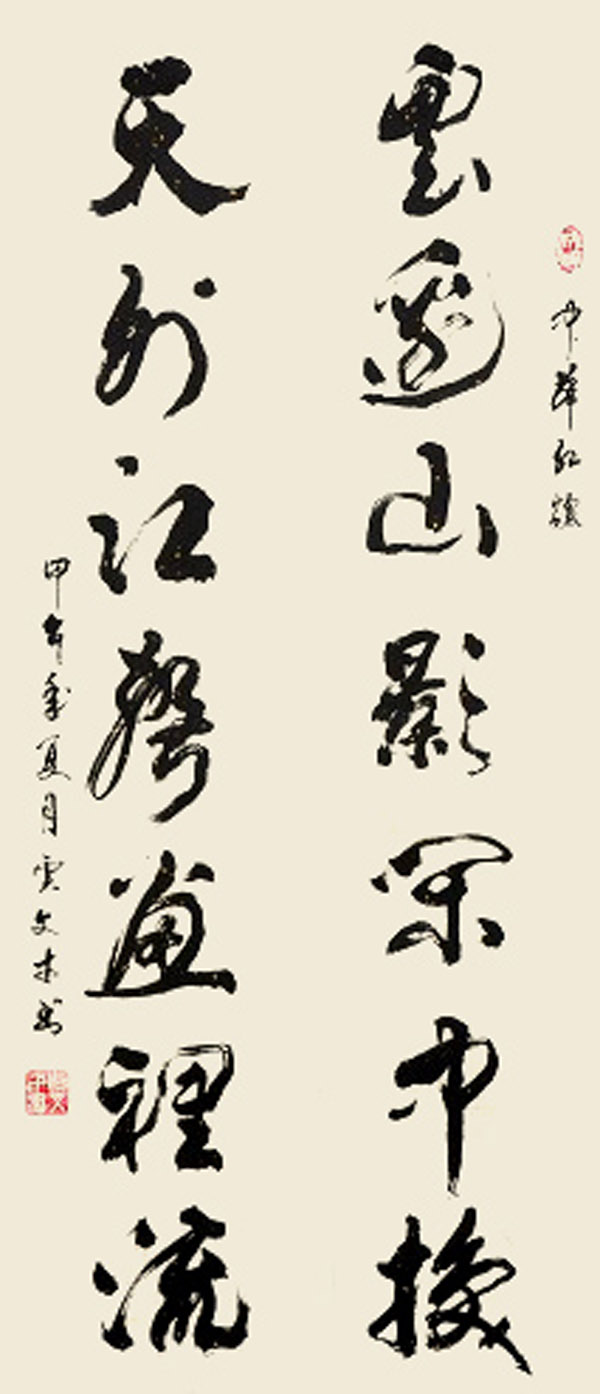 中華
雲邊山影閑中換
天外江聲畫裡流
甲午年夏月文書